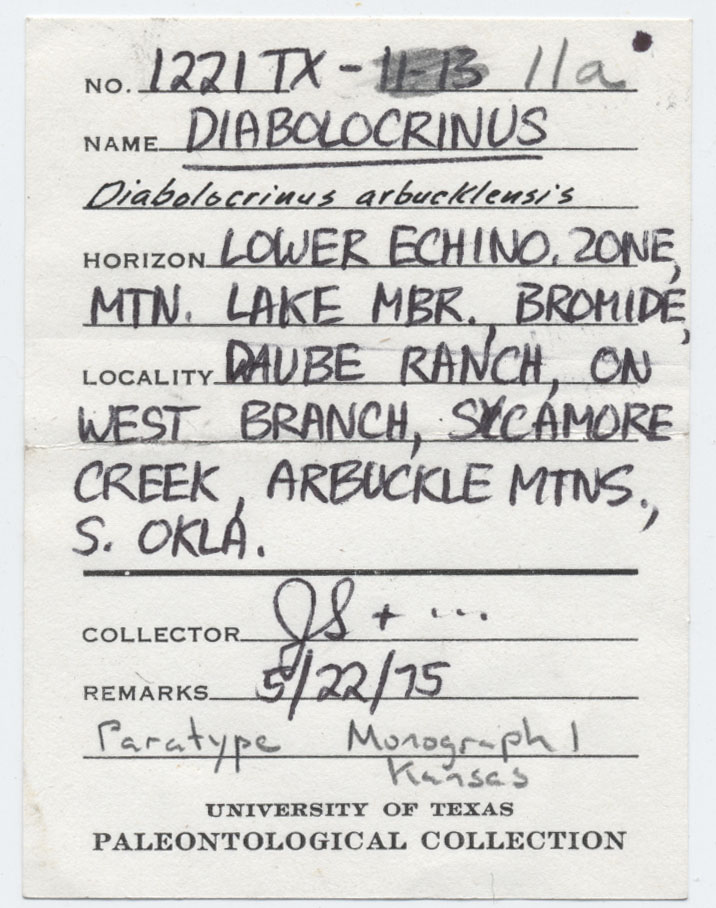 NO. 1221TX - 11-13 11a
NAME DIABOLOCRINUS
Diabolocrinus arbucklensis
HORIZON LOWER ECHINO. ZONE,
MTN. LAKE MBR., BROMIDE,
LOCALITY DAUBE RANCH, ON
WEST BRANCH, SYCAMORE
CREEK, ARBUCKLE MTNS.,
S. OKLA.
COLLECTOR JS + ...
REMARKS 5/22/75
Paratype Monograph 1
Kansas
UNIVERSITY OF TEXAS
PALEONTOLOGICAL COLLECTION